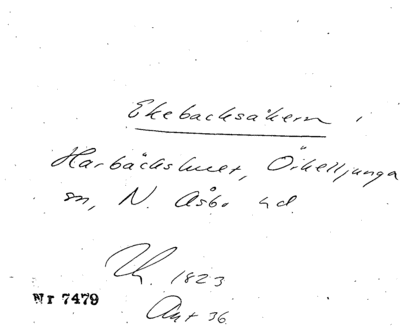 Ekebacksåkern i
Harbäckshult, Örkelljunga
sn, N. Åsbo hd.
Uh. 1823
Nr 7479
Akt 36